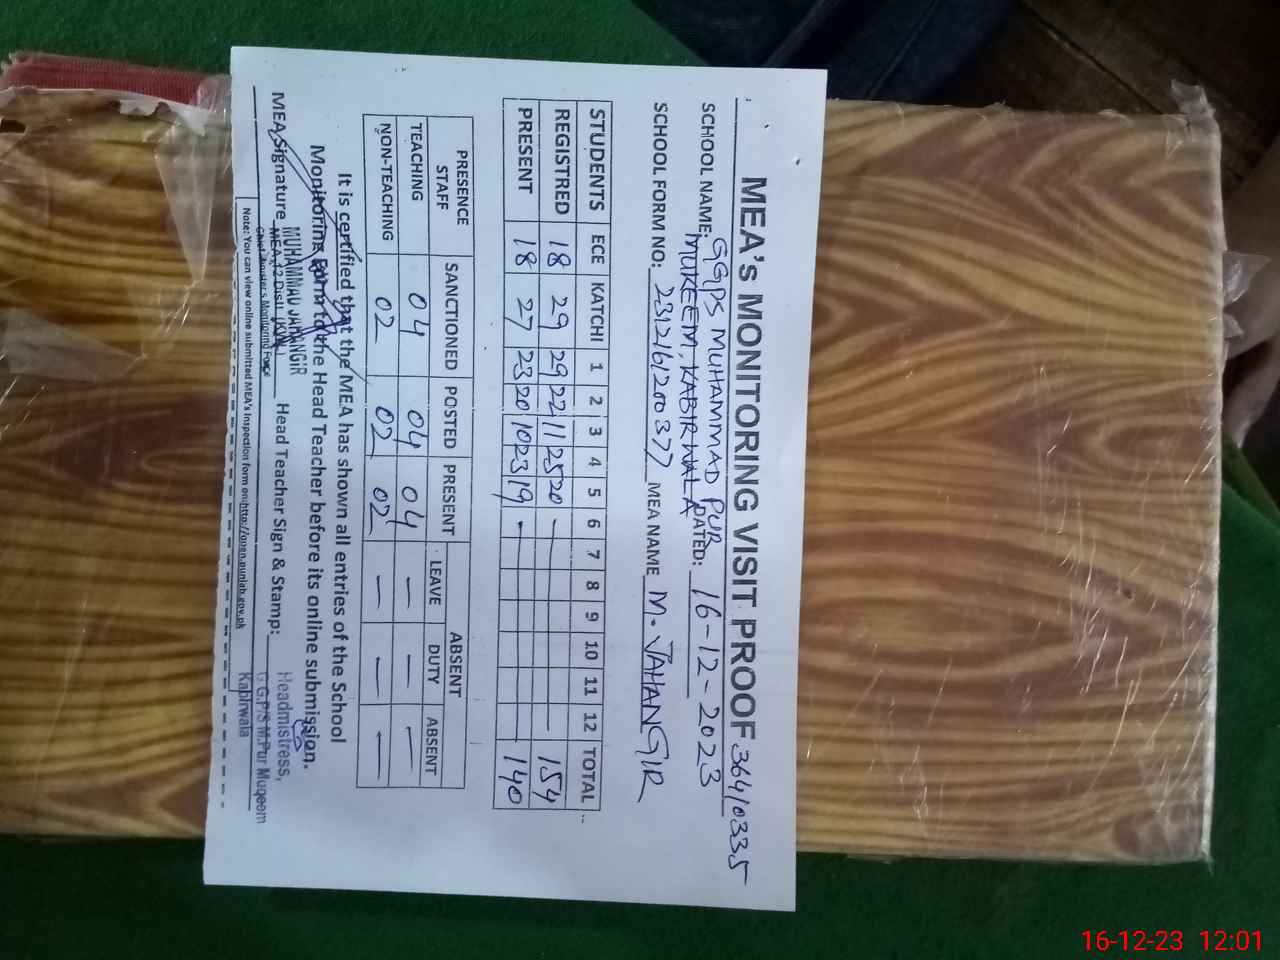 MEA's MONITORING VISIT PROOF 36410335
SCHOOL NAME: GGPS MUHAMMAD PUR
MUKEEM, KABIRWALA DATED: 16-12-2023
SCHOOL FORM NO: 231216120037 MEA NAME M. JAHANGIR
STUDENTS ECE KATCHI 1 2 3 4 5 6 7 8 9 10 11 12 TOTAL
REGISTRED 18 29 29 22 11 25 20 — 154
PRESENT 18 27 23 20 10 23 19 — 140
PRESENCE STAFF SANCTIONED POSTED PRESENT ABSENT
LEAVE DUTY ABSENT
TEACHING 04 04 04 — — —
NON-TEACHING 02 02 02 — — —
It is certified that the MEA has shown all entries of the School
Monitoring Form to the Head Teacher before its online submission.
MEA Signature Head Teacher Sign & Stamp:
MUHAMMAD JAHANGIR
MEA-12 Distt (KWL)
Chief Minister's Monitoring Force
Headmistress,
G.G.P/S M.Pur Muqeem
Kabirwala
Note: You can view online submitted MEA's inspection form on:http://open.punjab.gov.pk
16-12-23 12:01